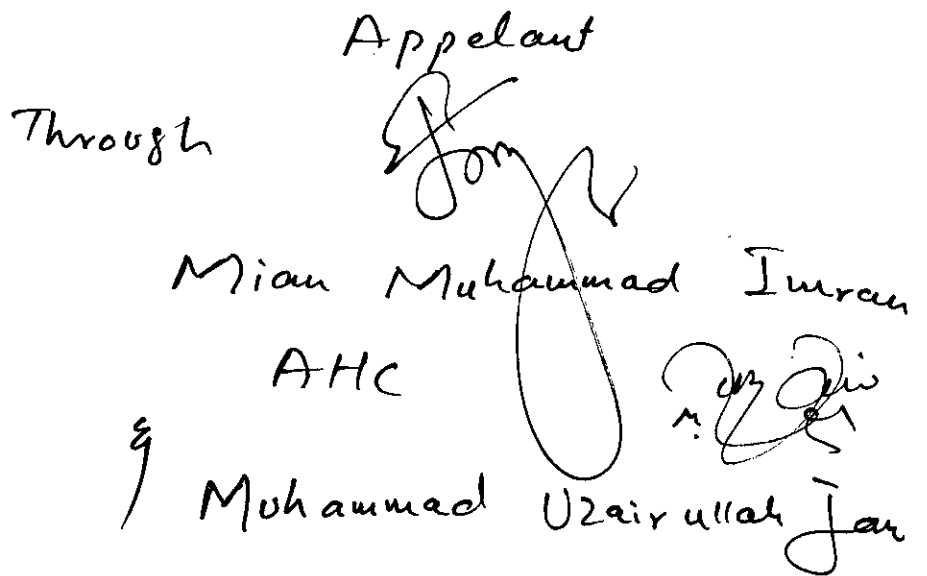 Appelant
Through
Mian Muhammad Imran
AHC
&
Muhammad Uzairullah Jan